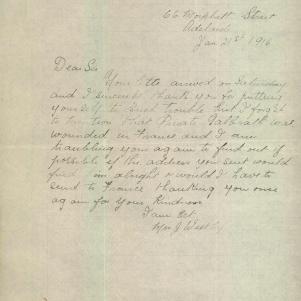 66 Morphett Street
Adelaide
Jan 21st 1916
Dear Sir
Your letter arrived on Saturday
and I sincerely thank you for putting
yourself to such trouble but I forgot
to mention that Private Galbraith was
wounded in France and I am
troubling you again to find out if
possible if the address you sent would
find him alright or would I have to
send to France thanking you once
again for your kindness
I am Etc
Mrs J